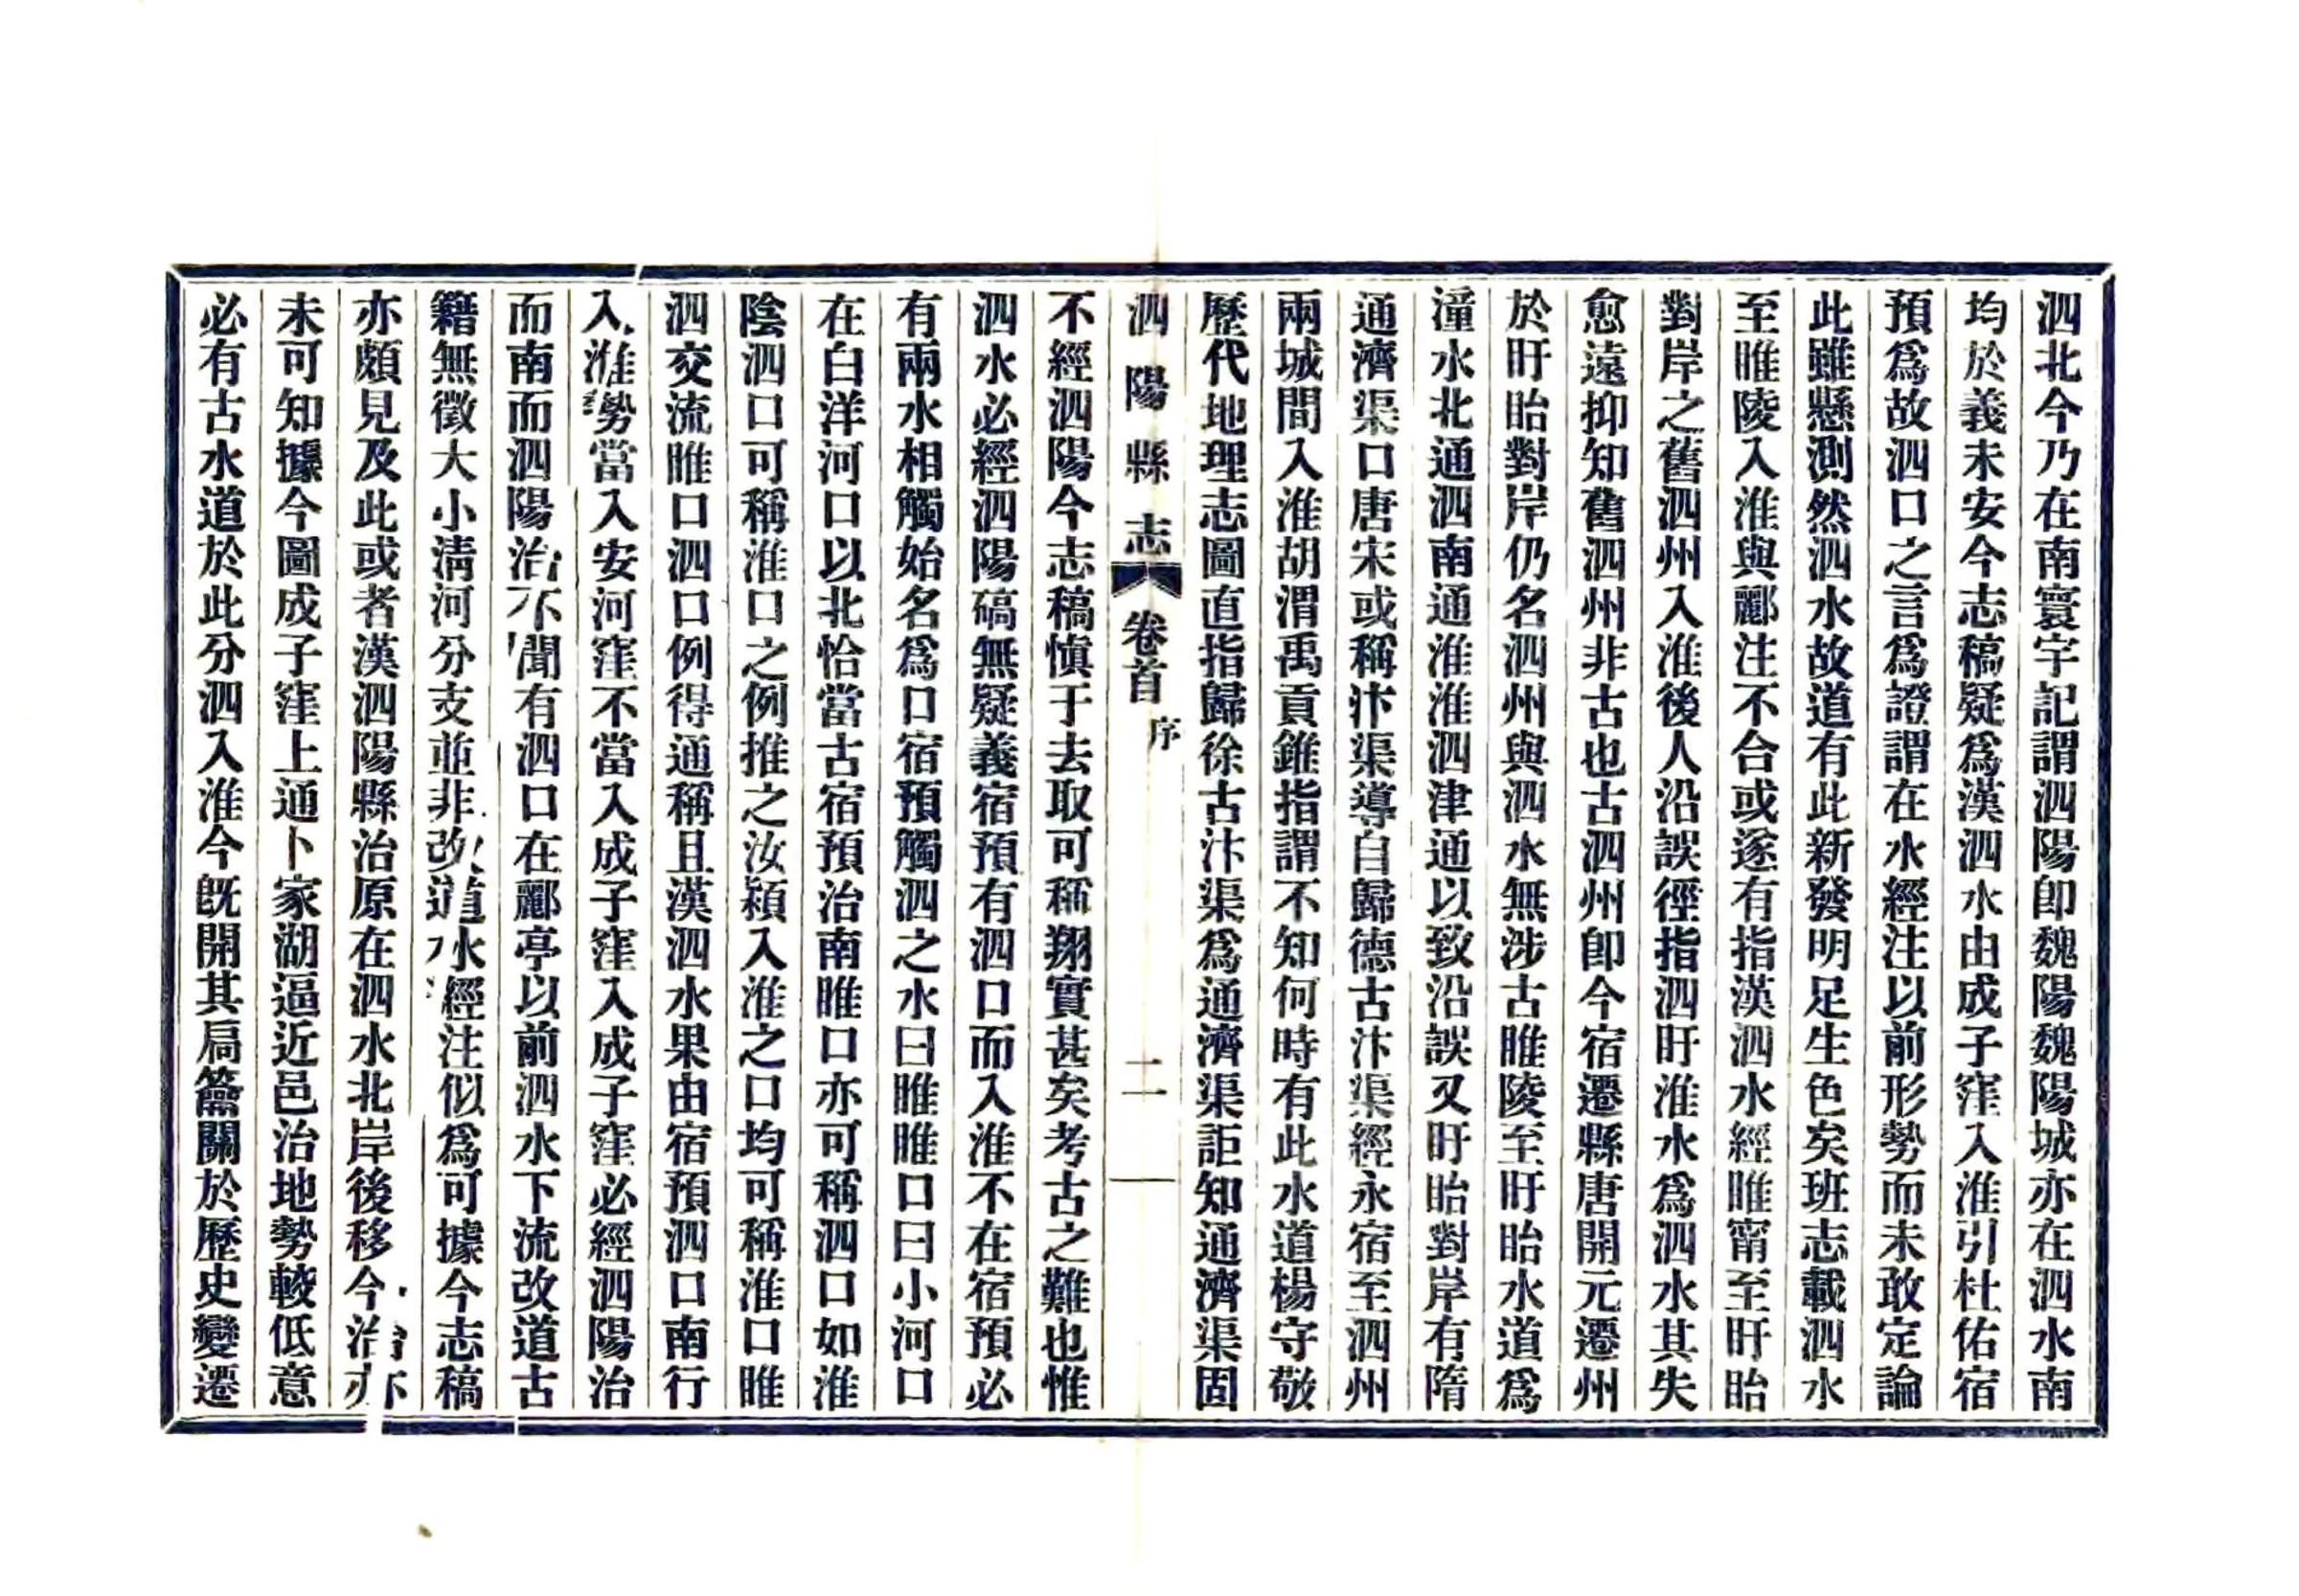 泗北今乃在南寰宇記謂泗陽卽魏陽魏陽城亦在泗水南
均於義未安今志稿疑爲漢泗水由成子窪入淮引杜佑宿
預爲故泗口之言爲證謂在水經注以前形勢而未敢定論
此雖懸測然泗水故道有此新發明足生色矣班志載泗水
至睢陵入淮與酈注不合或遂有指漢泗水經睢甯至盱眙
對岸之舊泗州入淮後人沿誤徑指泗盱淮水爲泗水其失
愈遠抑知舊泗州非古也古泗州卽今宿遷縣唐開元遷州
於盱眙對岸仍名泗州與泗水無涉古睢陵至盱眙水道爲
潼水北通泗南通淮淮泗津通以致沿誤又盱眙對岸有隋
通濟渠口唐宋或稱汴渠導自歸德古汴渠經永宿至泗州
兩城間入淮胡渭禹貢錐指謂不知何時有此水道楊守敬
歷代地理志圖直指歸徐古汴渠爲通濟渠詎知通濟渠固
泗陽縣志 卷首 序 二
不經泗陽今志稿愼于去取可稱翔實甚矣考古之難也惟
泗水必經泗陽碻無疑義宿預有泗口而入淮不在宿預必
有兩水相觸始名爲口宿預觸泗之水曰睢睢口曰小河口
在白洋河口以北恰當古宿預治南睢口亦可稱泗口如淮
陰泗口可稱淮口之例推之汝潁入淮之口均可稱淮口睢
泗交流睢口泗口例得通稱且漢泗水果由宿預泗口南行
入淮勢當入安河窪不當入成子窪入成子窪必經泗陽治
而南而泗陽治不聞有泗口在酈亭以前泗水下流改道古
籍無徵大小淸河分支並非改道水經注似爲可據今志稿
亦頗見及此或者漢泗陽縣治原在泗水北岸後移今治亦
未可知據今圖成子窪上通卜家湖逼近邑治地勢較低意
必有古水道於此分泗入淮今旣開其扃籥關於歷史變遷